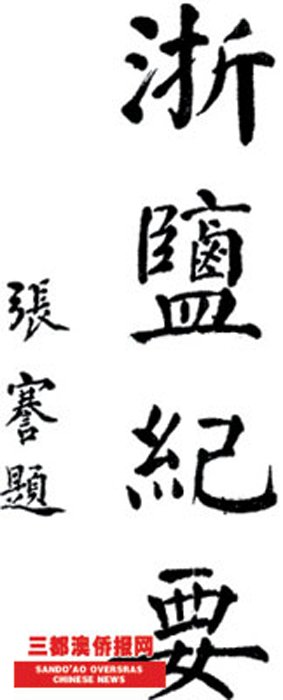 浙鹽紀要
張謇題
三都澳侨报网
SANDO'AO OVERSEAS
CHINESE NEWS